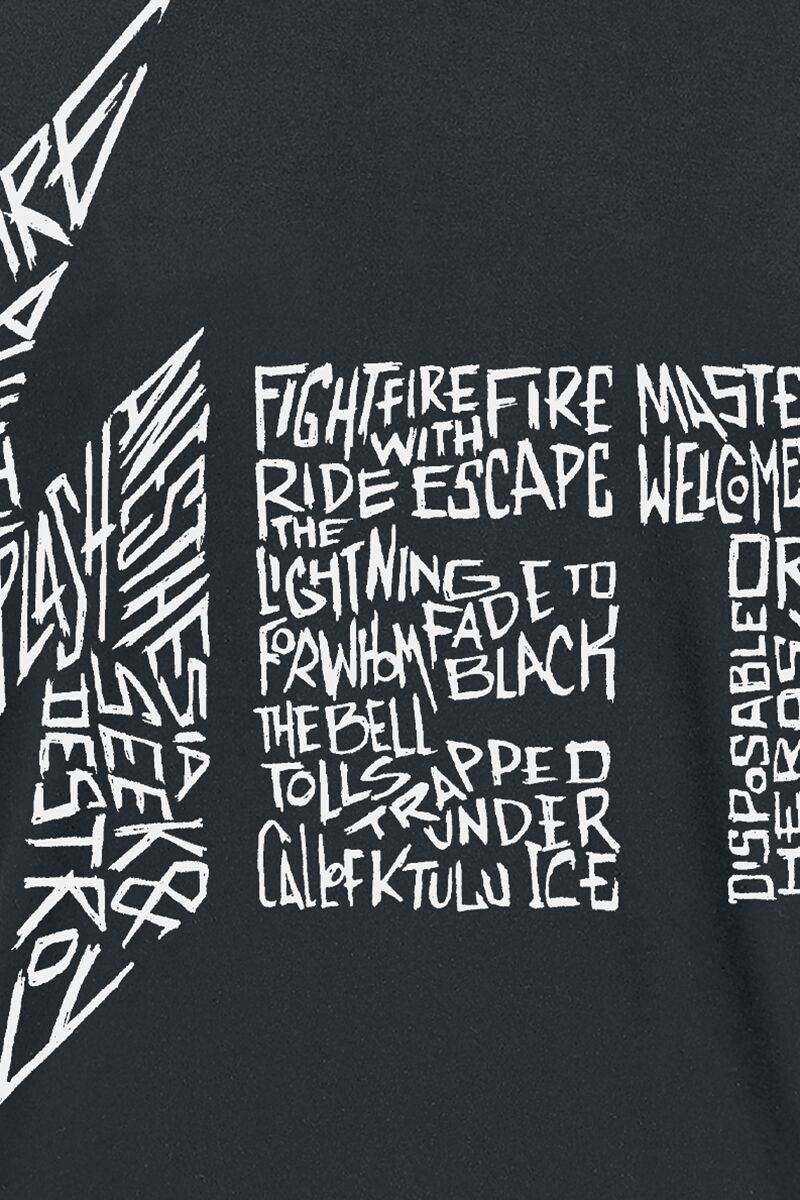 WHIPLASH
ANESTHESIA
SEEK &
DESTROY
FIGHT FIRE WITH FIRE
RIDE THE LIGHTNING
ESCAPE
FOR WHOM THE BELL TOLLS
FADE TO BLACK
TRAPPED UNDER ICE
CALL OF KTULU
MASTE
WELCOME
OR
DISPOSABLE